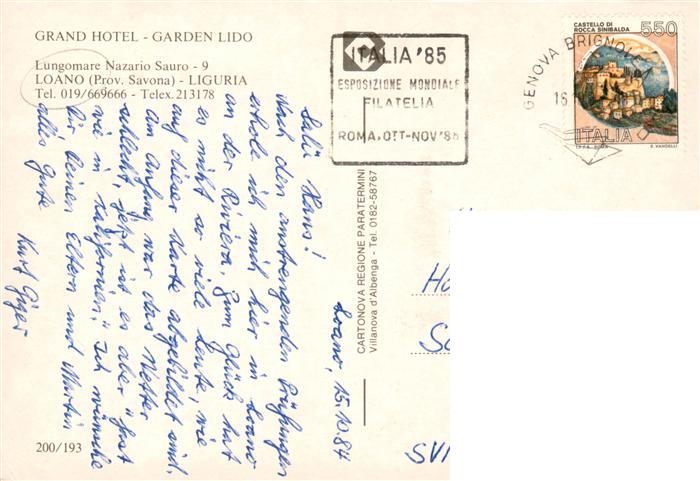 GRAND HOTEL - GARDEN LIDO
Lungomare Nazario Sauro - 9
LOANO (Prov. Savona) - LIGURIA
Tel. 019/669666 - Telex. 213178
ITALIA '85
ESPOSIZIONE MONDIALE
FILATELIA
ROMA, OTT-NOV '85
GENOVA BRIGNOLE
16.
CASTELLO DI
ROCCA SINIBALDA
550
ITALIA
I.P.Z.S. ROMA
E. VANGELLI
Loano, 15.10.84
Salü Hans!
Nach den anstrengenden Prüfungen
erhole ich mich hier in Loano
an der Riviera. Zum Glück hat
es nicht so viele Leute, wie
auf dieser Karte abgebildet sind.
Am Anfang war das Wetter
schlecht, jetzt ist es aber "fast
wie in Kalifornien". Ich wünsche
Dir, Deinen Eltern und Martin
alles Gute
Kurt Giger
CARTONOVA REGIONE PARATERMINI
Villanova d'Albenga - Tel. 0182-58767
200/193